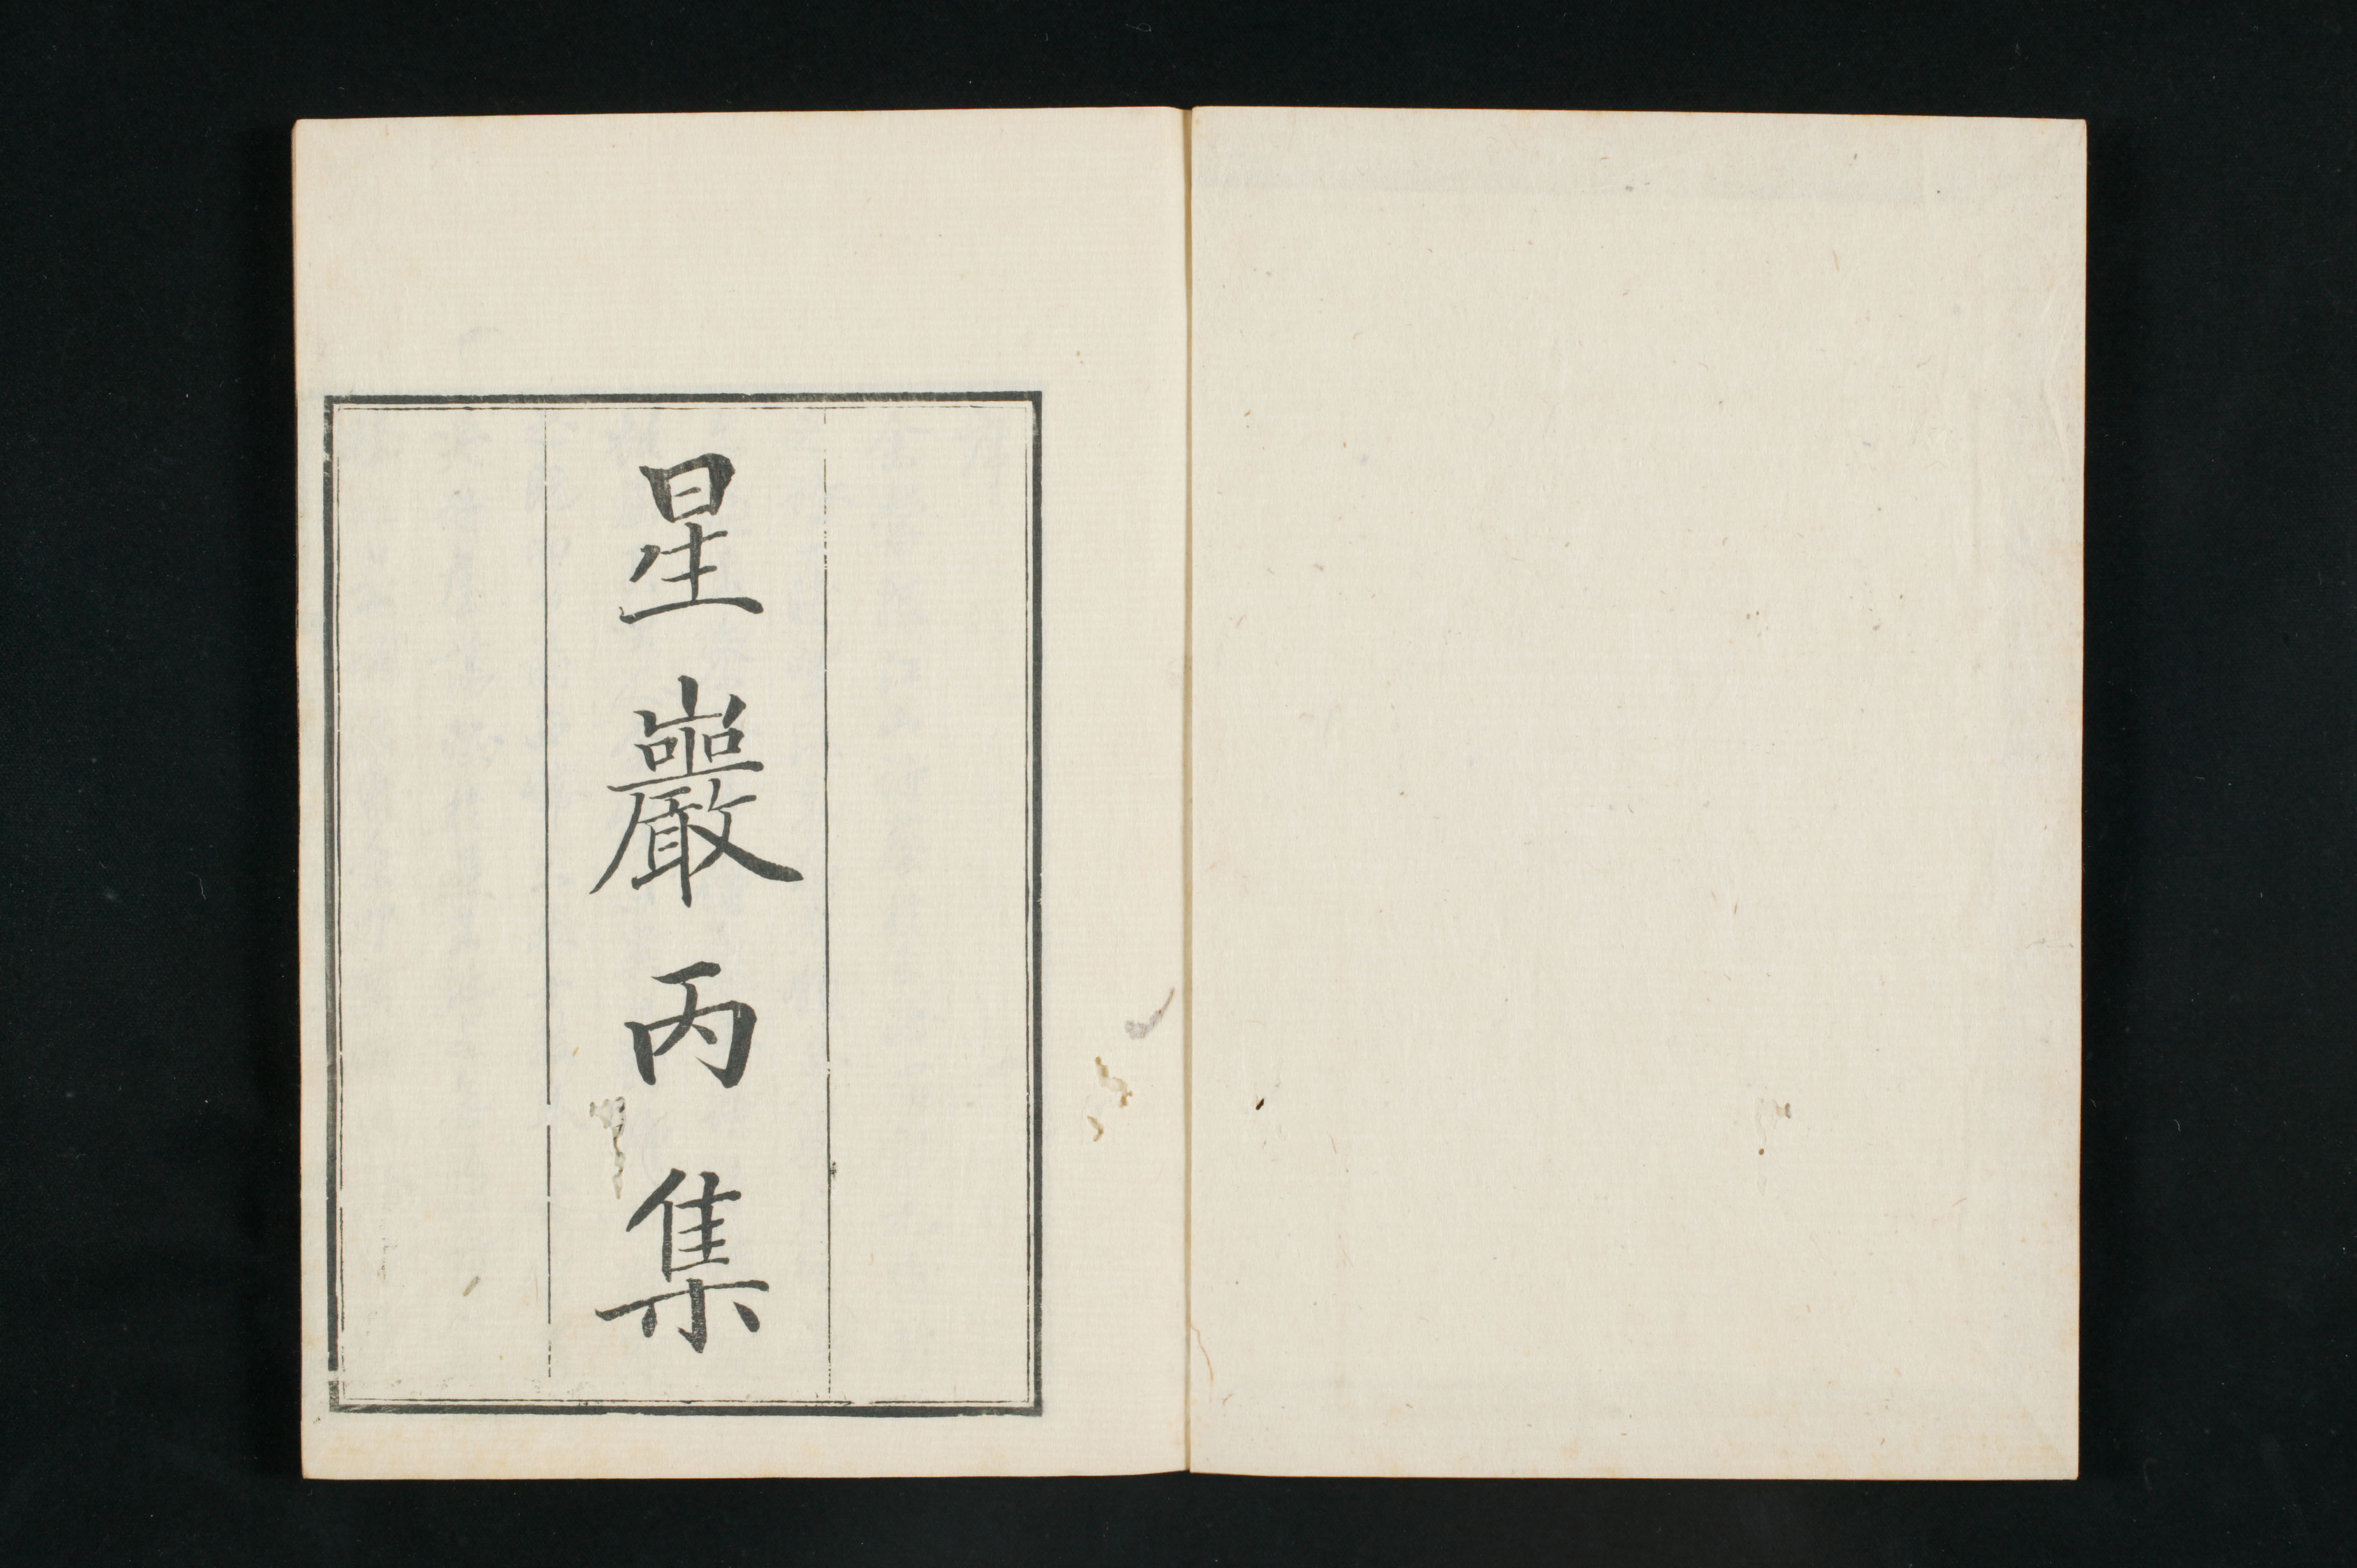 星巖丙集